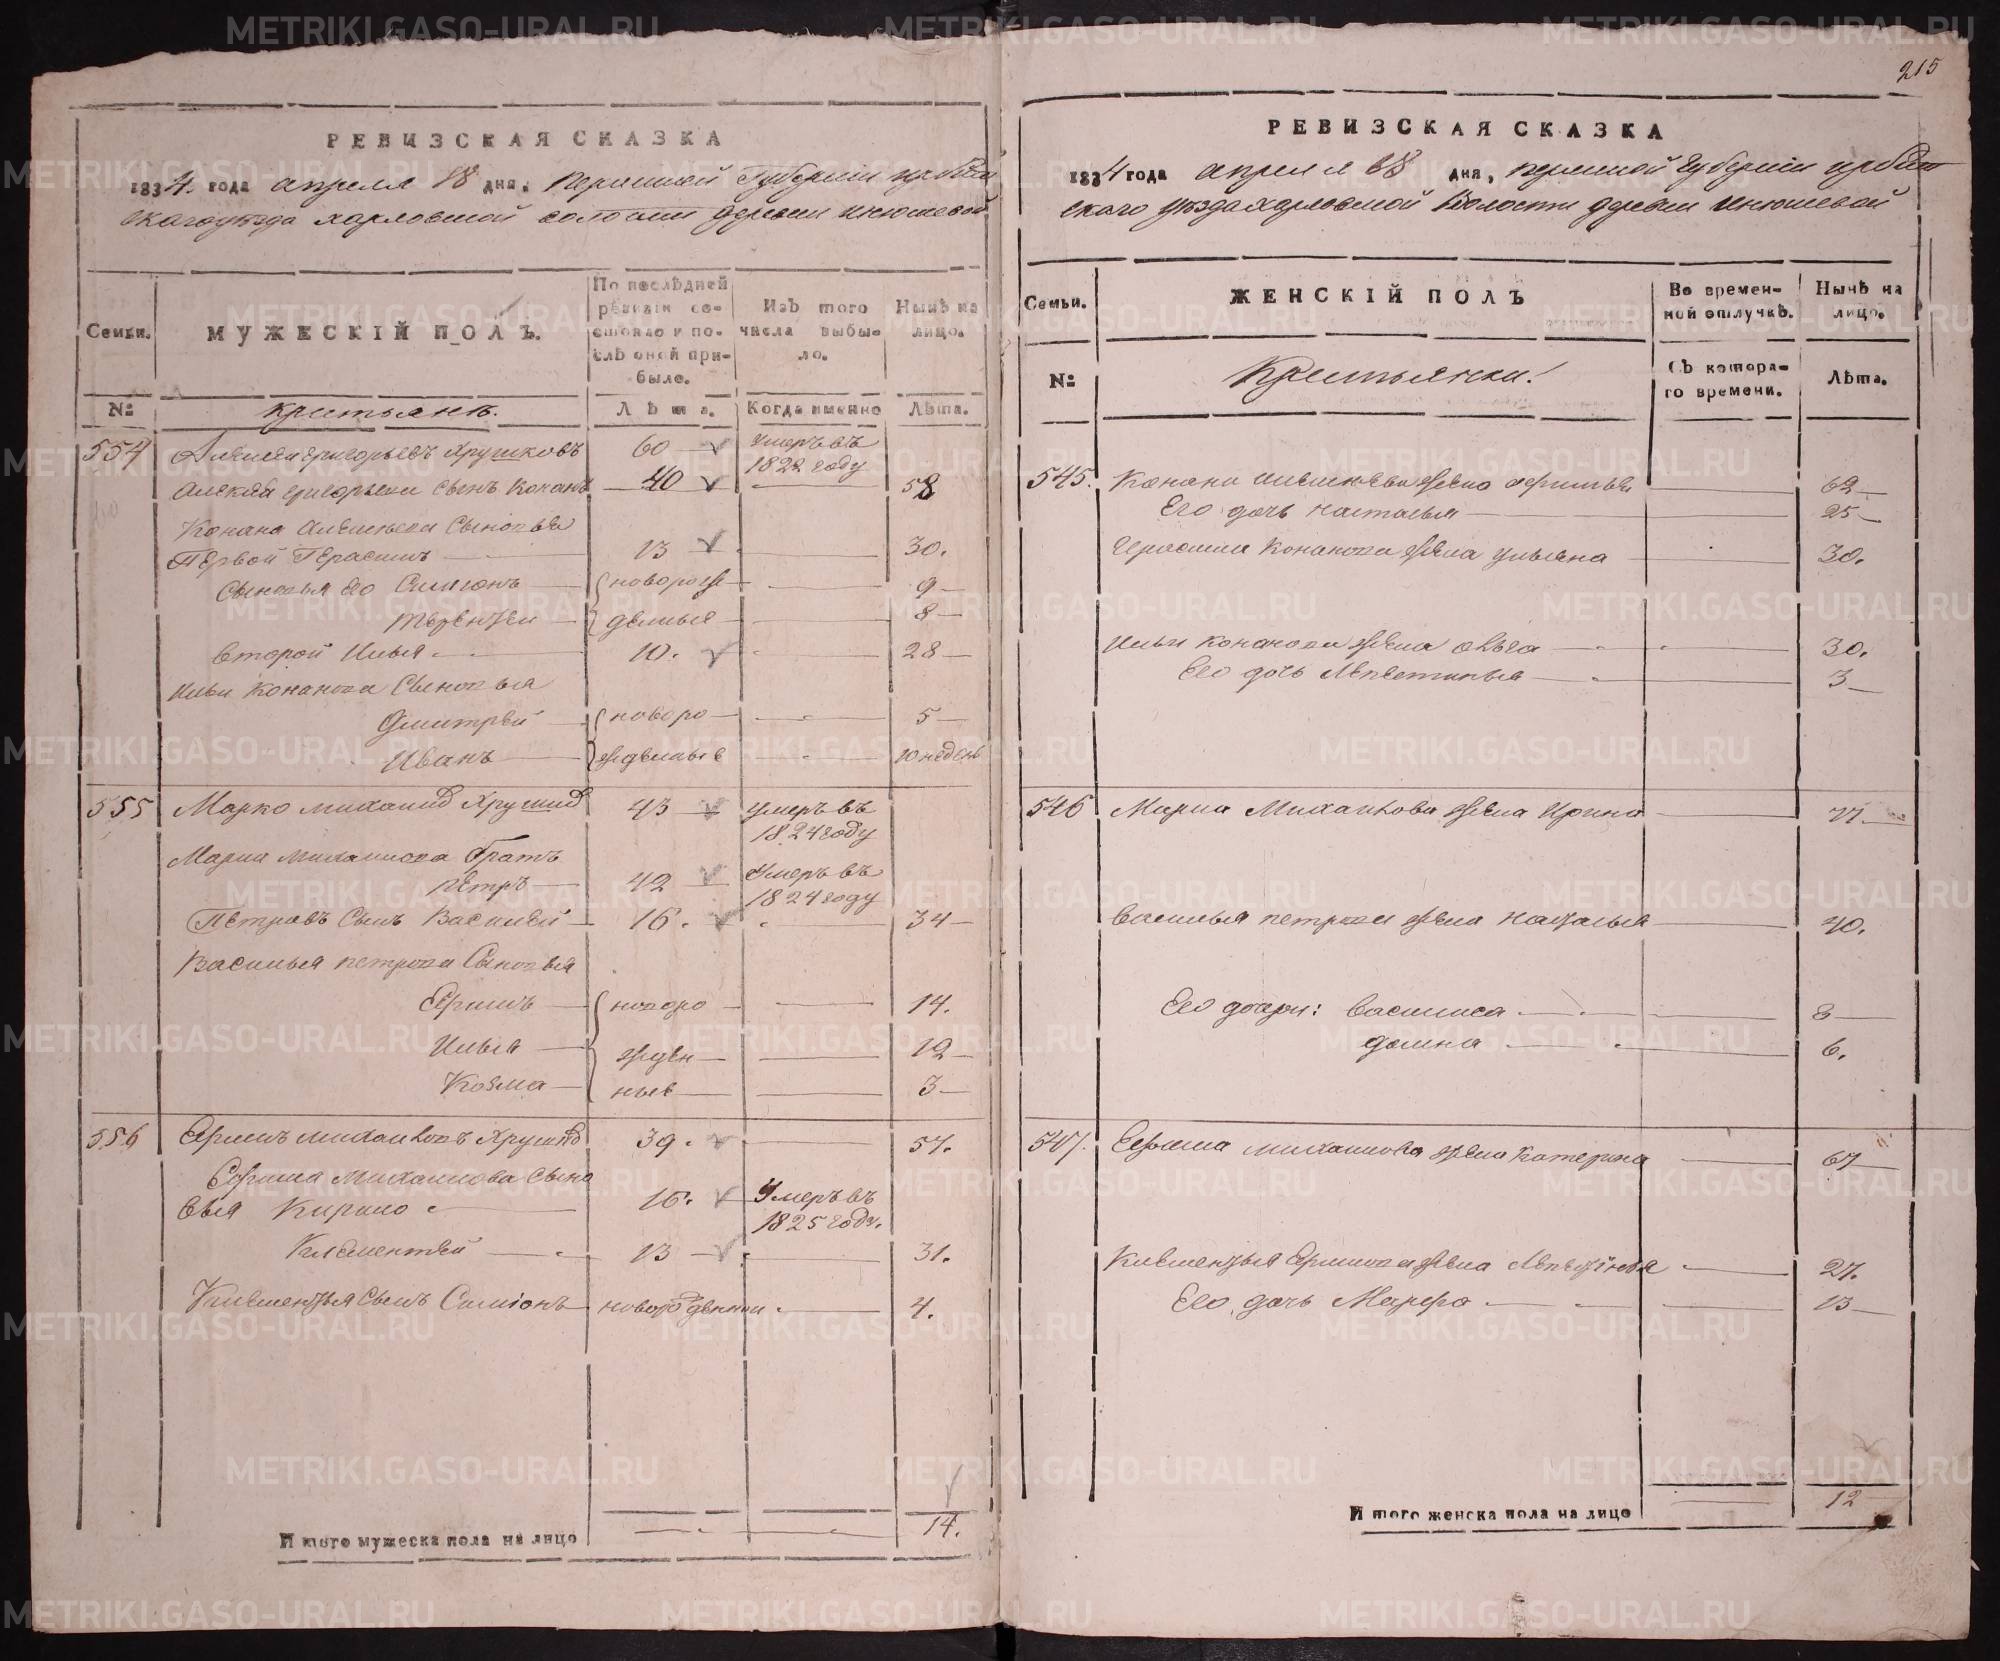 215
РЕВИЗСКАЯ СКАЗКА
1834. года апреля 18 дня, Пермской Губернiи ирбит
скаго уѣзда харловской волости деревни Инюшевой
Семьи.
МУЖЕСКIЙ ПОЛЪ.
По послѣдней ревизiи состояло и послѣ оной прибыло.
Изъ того числа выбыло.
Нынѣ на лицо.
№
крестьянѣ.
Лѣта.
Когда именно
Лѣта.
554 Алексеи григорьевъ Хрушковъ 60 Умеръ въ 1822 году
Алексѣя григорьева Сынъ Конанъ 40 58
Конана Алексѣева Сыновья
Первой Герасимъ 13 30.
Сыновья его Симионъ новорож 9
Терентеи денныя 8
Второй Илья 10. 28
Ильи Конанова Сыновья
Дмитрей новоро 5
Иванъ жденные 10 недель
555 Марко михаиловъ Хрушков 43 Умеръ въ 1824 году
Марка михаилова Братъ
петръ 42 Умеръ въ 1824 году
Петровъ Сынъ Василей 16. 34
Василья петрова Сыновья
Ефимъ новоро 14.
Илья жден 12
Козма ные 3
556 Ефимъ михаиловъ Хрушков 39. 57.
Ефима Михаилова Сыно
вья Кирило 16. Умеръ въ 1825 году.
Клементей 13 31.
Клементья Сынъ Симiонъ новорожденнои 4.
Итого мужеска пола на лицо 14.
РЕВИЗСКАЯ СКАЗКА
1834 года апреля 18 дня, пермской Губернiи ирбит
скаго уѣзда харловской Волости деревни Инюшевой
Семьи.
ЖЕНСКIЙ ПОЛЪ
Во временной отлучкѣ.
Нынѣ на лицо.
№
Крестьянки.
Съ котораго времени.
Лѣта.
545. Конана Алексѣева жена 62
Его дочь настасья 25
Герасима Конанова жена ульяна 30.
Ильи Конанова жена олга 30.
Его дочь 3
546 Марка Михаилова жена Ирина 77.
Василья петрова жена Наталья 40.
Его дочери: Василиса 8
домна 6.
547. Ефима михаилова жена Катерина 67
Клементья Ефимова жена 27.
Его дочь Марфа 13
Итого женска пола на лицо 12
METRIKI.GASO-URAL.RU